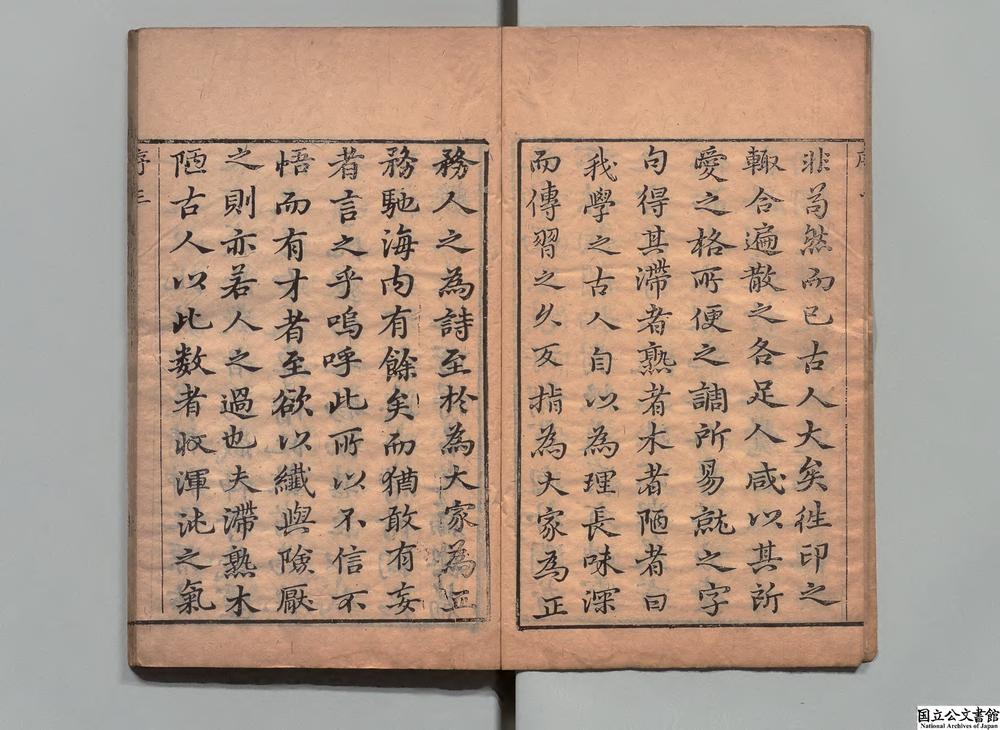 非苟然而已古人大矣徃印之
輙合遍散之各足人咸以其所
愛之格所便之調所易就之字
句得其滯者熟者木者陋者曰
我學之古人自以為理長味深
而傳習之久反指為大家為正
務人之為詩至於為大家為正
務馳海内有餘矣而猶敢有妄
者言之乎嗚呼此所以不信不
悟而有才者至欲以纎與險厭
之則亦若人之過也夫滯熟木
陋古人以此数者收渾沌之氣
序三
国立公文書館
National Archives of Japan